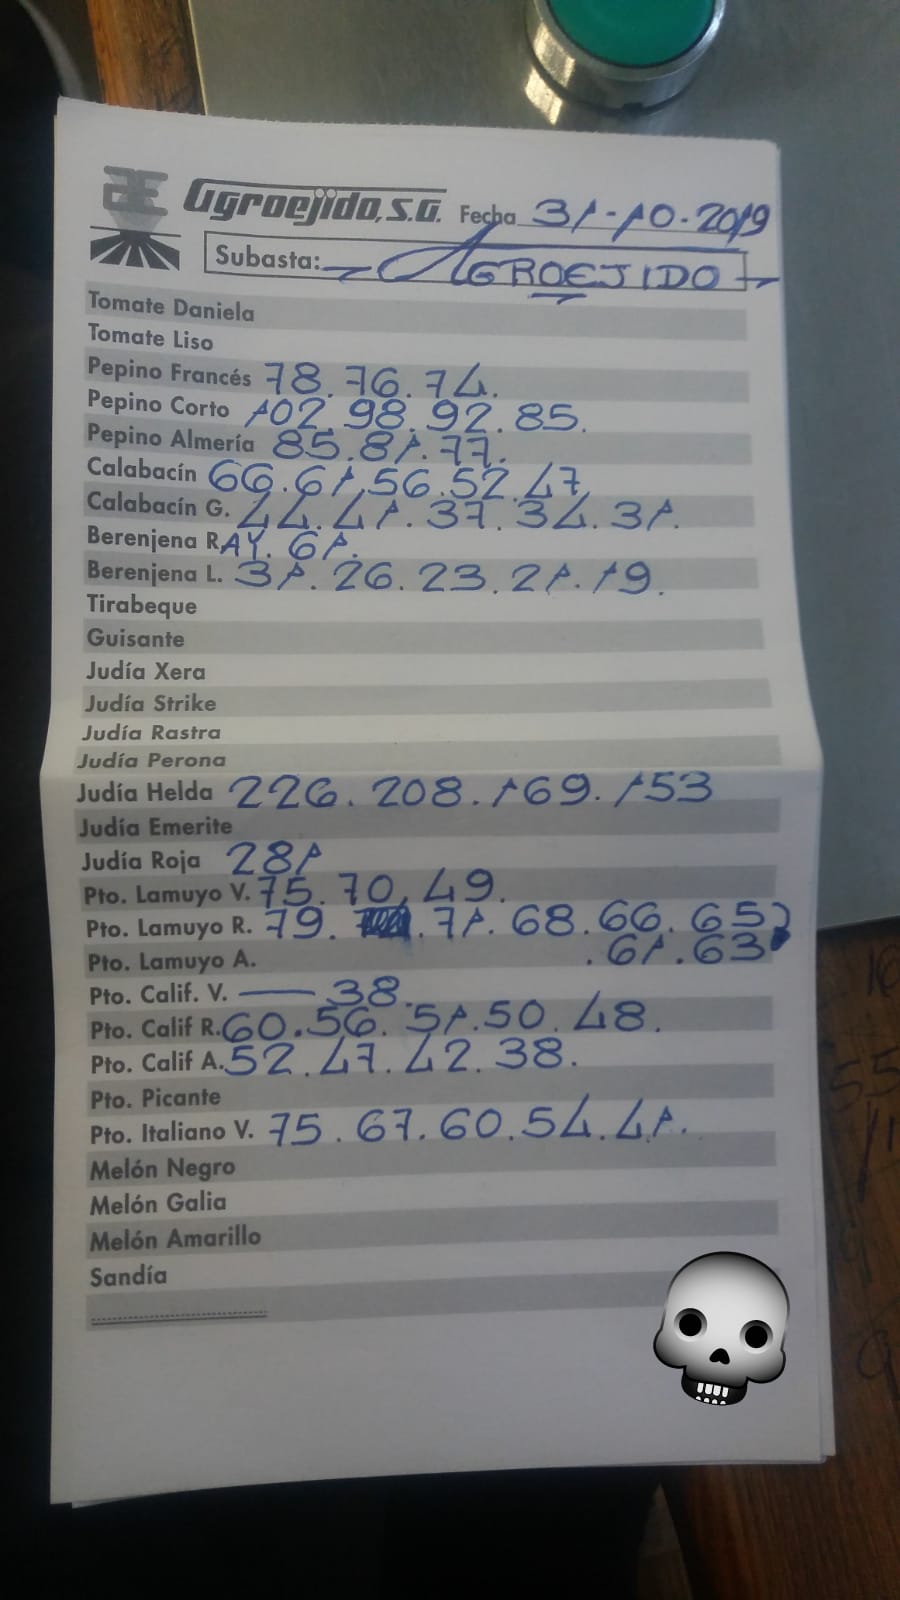 Agroejido, S.G. Fecha 31-10-2019
Subasta: AGROEJIDO
Tomate Daniela
Tomate Liso
Pepino Francés 78.76.74.
Pepino Corto 102.98.92.85.
Pepino Almería 85.81.77.
Calabacín 66.61.56.52.47
Calabacín G. 44.41.37.34.31.
Berenjena RAY. 61.
Berenjena L. 31.26.23.21.19.
Tirabeque
Guisante
Judía Xera
Judía Strike
Judía Rastra
Judía Perona
Judía Helda 226.208.169.153
Judía Emerite
Judía Roja 281
Pto. Lamuyo V. 75.70.49.
Pto. Lamuyo R. 79. .71.68.66.65
Pto. Lamuyo A. .61.63
Pto. Calif. V. — 38.
Pto. Calif R. 60.56.51.50.48.
Pto. Calif A. 52.47.42.38.
Pto. Picante
Pto. Italiano V. 75.67.60.54.41.
Melón Negro
Melón Galia
Melón Amarillo
Sandía